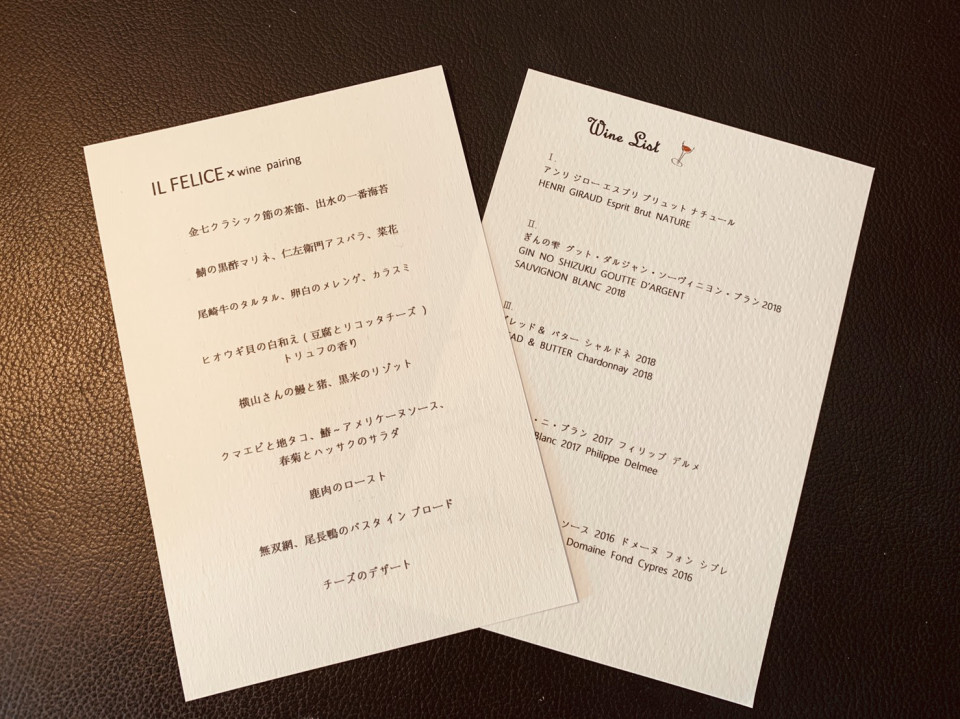 IL FELICE × wine pairing
金七クラシック節の茶節、出水の一番海苔
鰆の黒酢マリネ、仁左衛門アスパラ、菜花
尾崎牛のタルタル、卵白のメレンゲ、カラスミ
ヒオウギ貝の白和え ( 豆腐とリコッタチーズ )
トリュフの香り
横山さんの鰻と猪、黒米のリゾット
クマエビと地タコ、鰆～アメリケーヌソース、
春菊とハッサクのサラダ
鹿肉のロースト
無双網、尾長鴨のパスタ イン ブロード
チーズのデザート
Wine List
I.
アンリ ジロー エスプリ ブリュット ナチュール
HENRI GIRAUD Esprit Brut NATURE
II.
ぎんの雫 グット・ダルジャン・ソーヴィニヨン・ブラン 2018
GIN NO SHIZUKU GOUTTE D'ARGENT
SAUVIGNON BLANC 2018
III.
レッド & バター シャルドネ 2018
AD & BUTTER Chardonnay 2018
・ニ・ブラン 2017 フィリップ デルメ
Blanc 2017 Philippe Delmee
ソース 2016 ドメーヌ フォン シプレ
Domaine Fond Cypres 2016